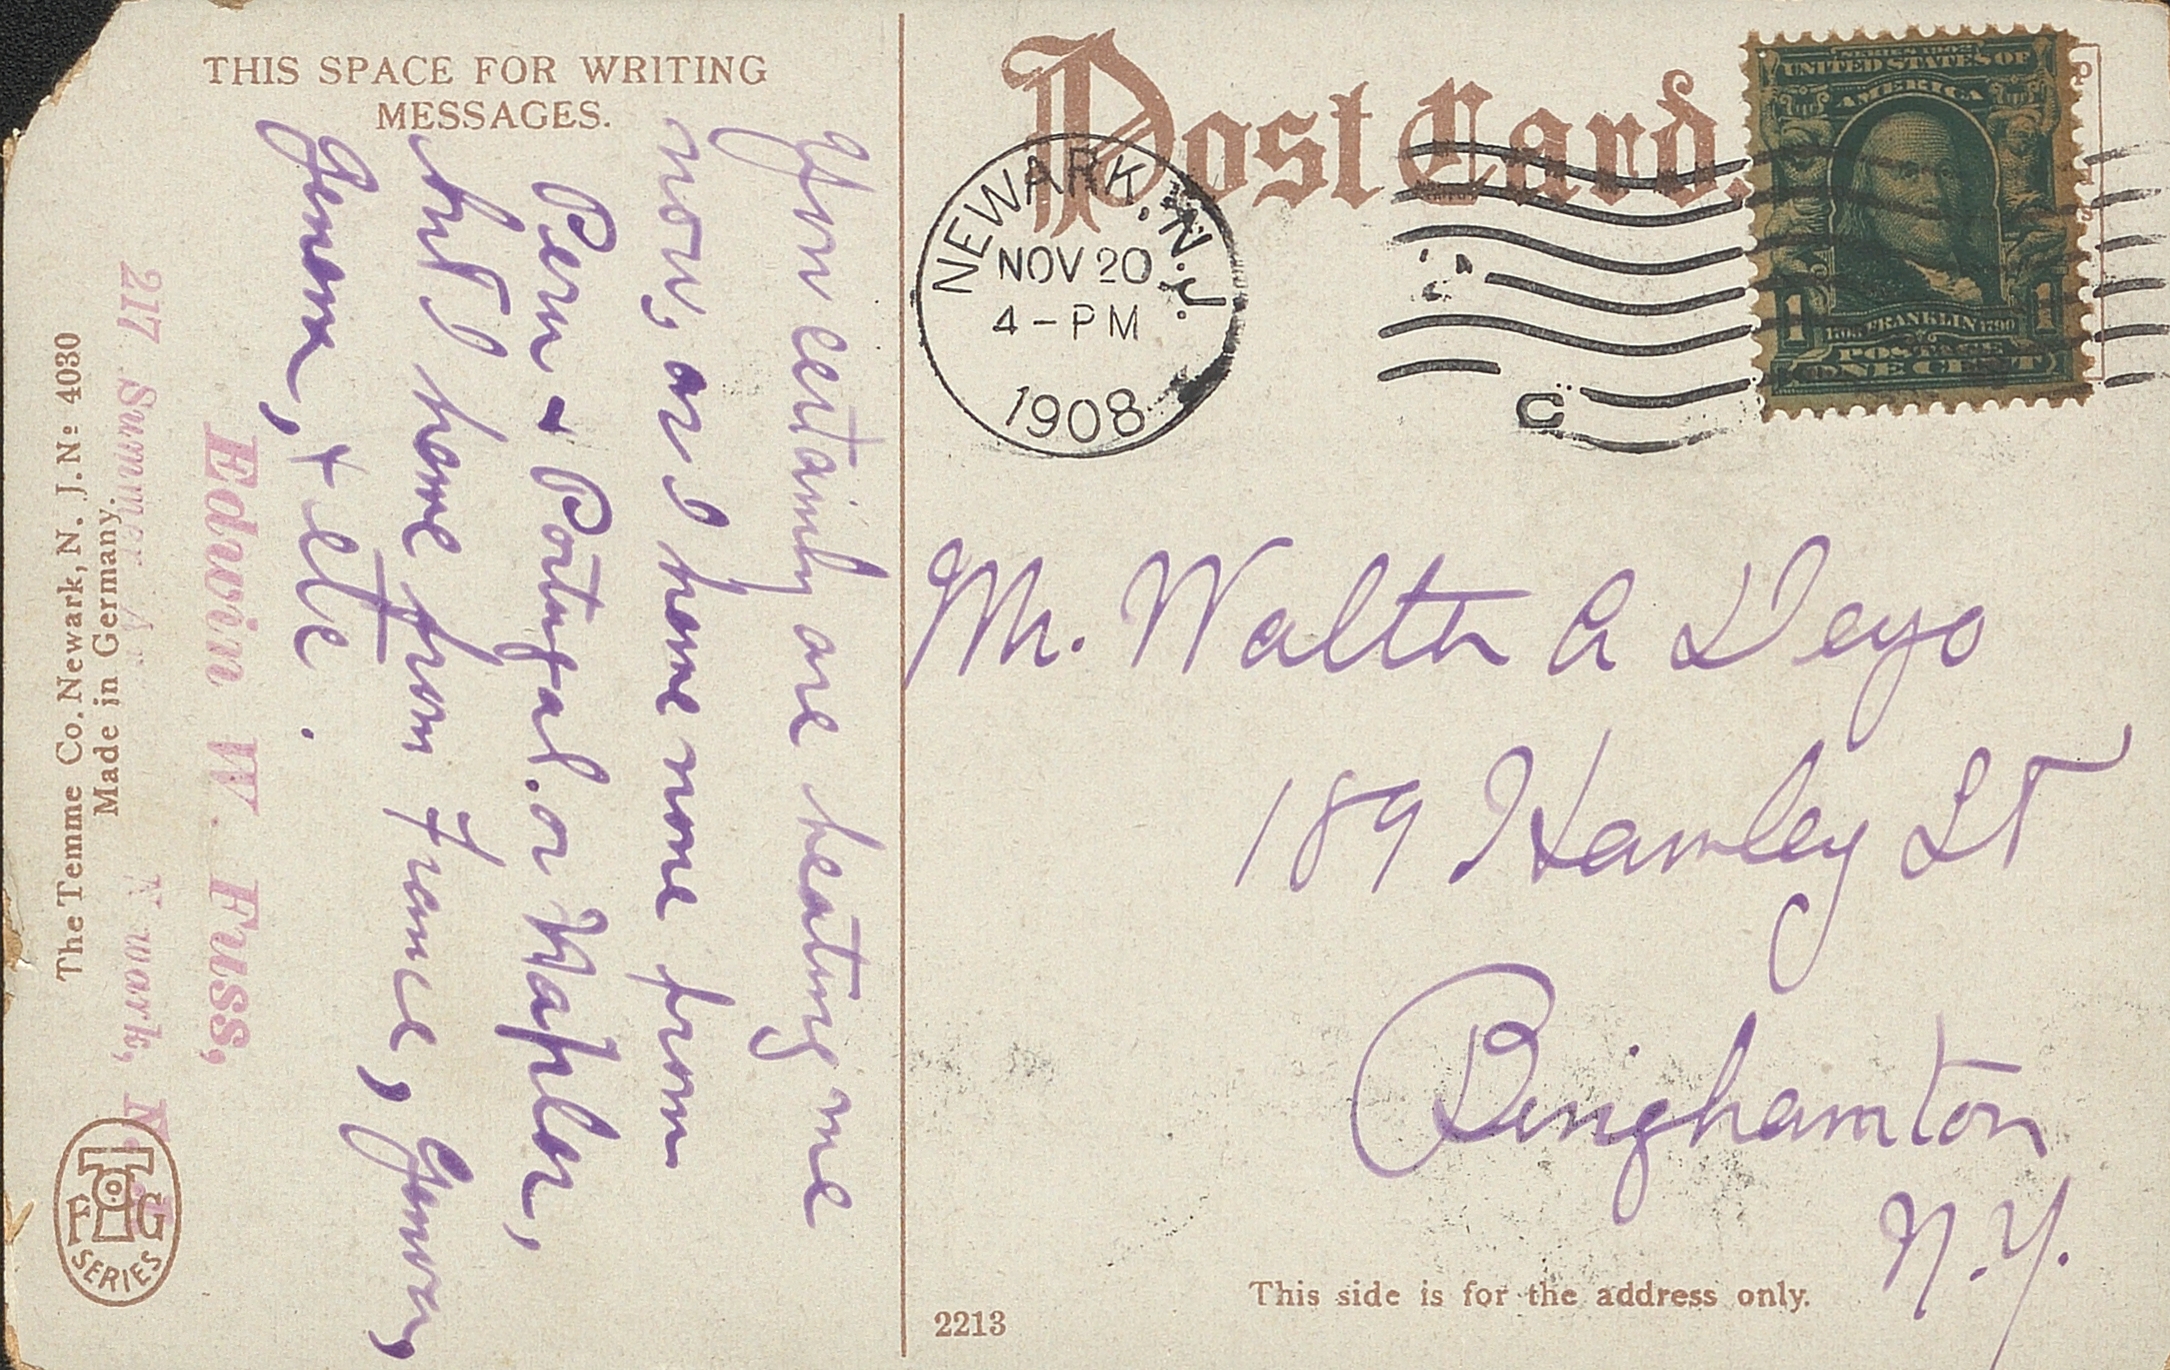 THIS SPACE FOR WRITING
MESSAGES.
You certainly are beating me
now, as I have none from
Peru & Portugal. or Naples,
but I have from France,
Genoa, + etc.
Edwin W. Fuss,
217 Summer
Newark, N. J.
The Temme Co. Newark, N. J. No 4030
Made in Germany.
F G
SERIES
Post Card.
NEWARK, N.J.
NOV 20
4-PM
1908
C
SERIES 1902
UNITED STATES OF
AMERICA
1706 FRANKLIN 1790
1 1
POSTAGE
ONE CENT
Mr. Walter A Deyo
189 Hawley St
Binghamton
N.Y.
This side is for the address only.
2213